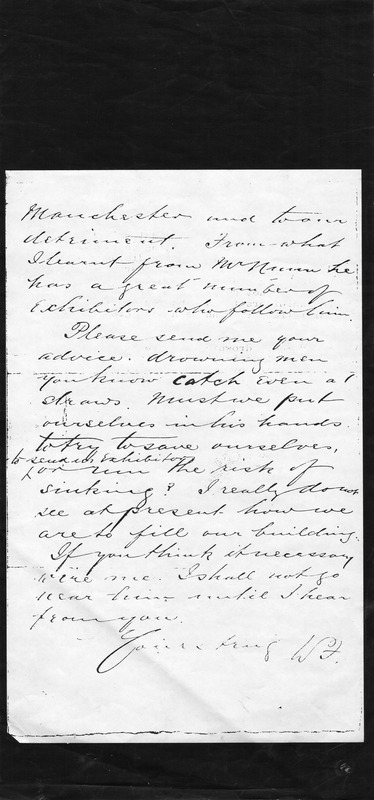 Manchester and to our
detriment. From what
I learnt from Mr Nunn he
has a great number of
Exhibitors who follow him.
Please send me your
advice. drowning men
you know catch even at
straws. Must we put
ourselves in his hands
to try to save ourselves,
to send us Exhibitors
or run the risk of
sinking? I really do not
see at present how we
are to fill our building.
If you think it necessary
wire me. I shall not go
near him until I hear
from you.
Yours truly W.F.